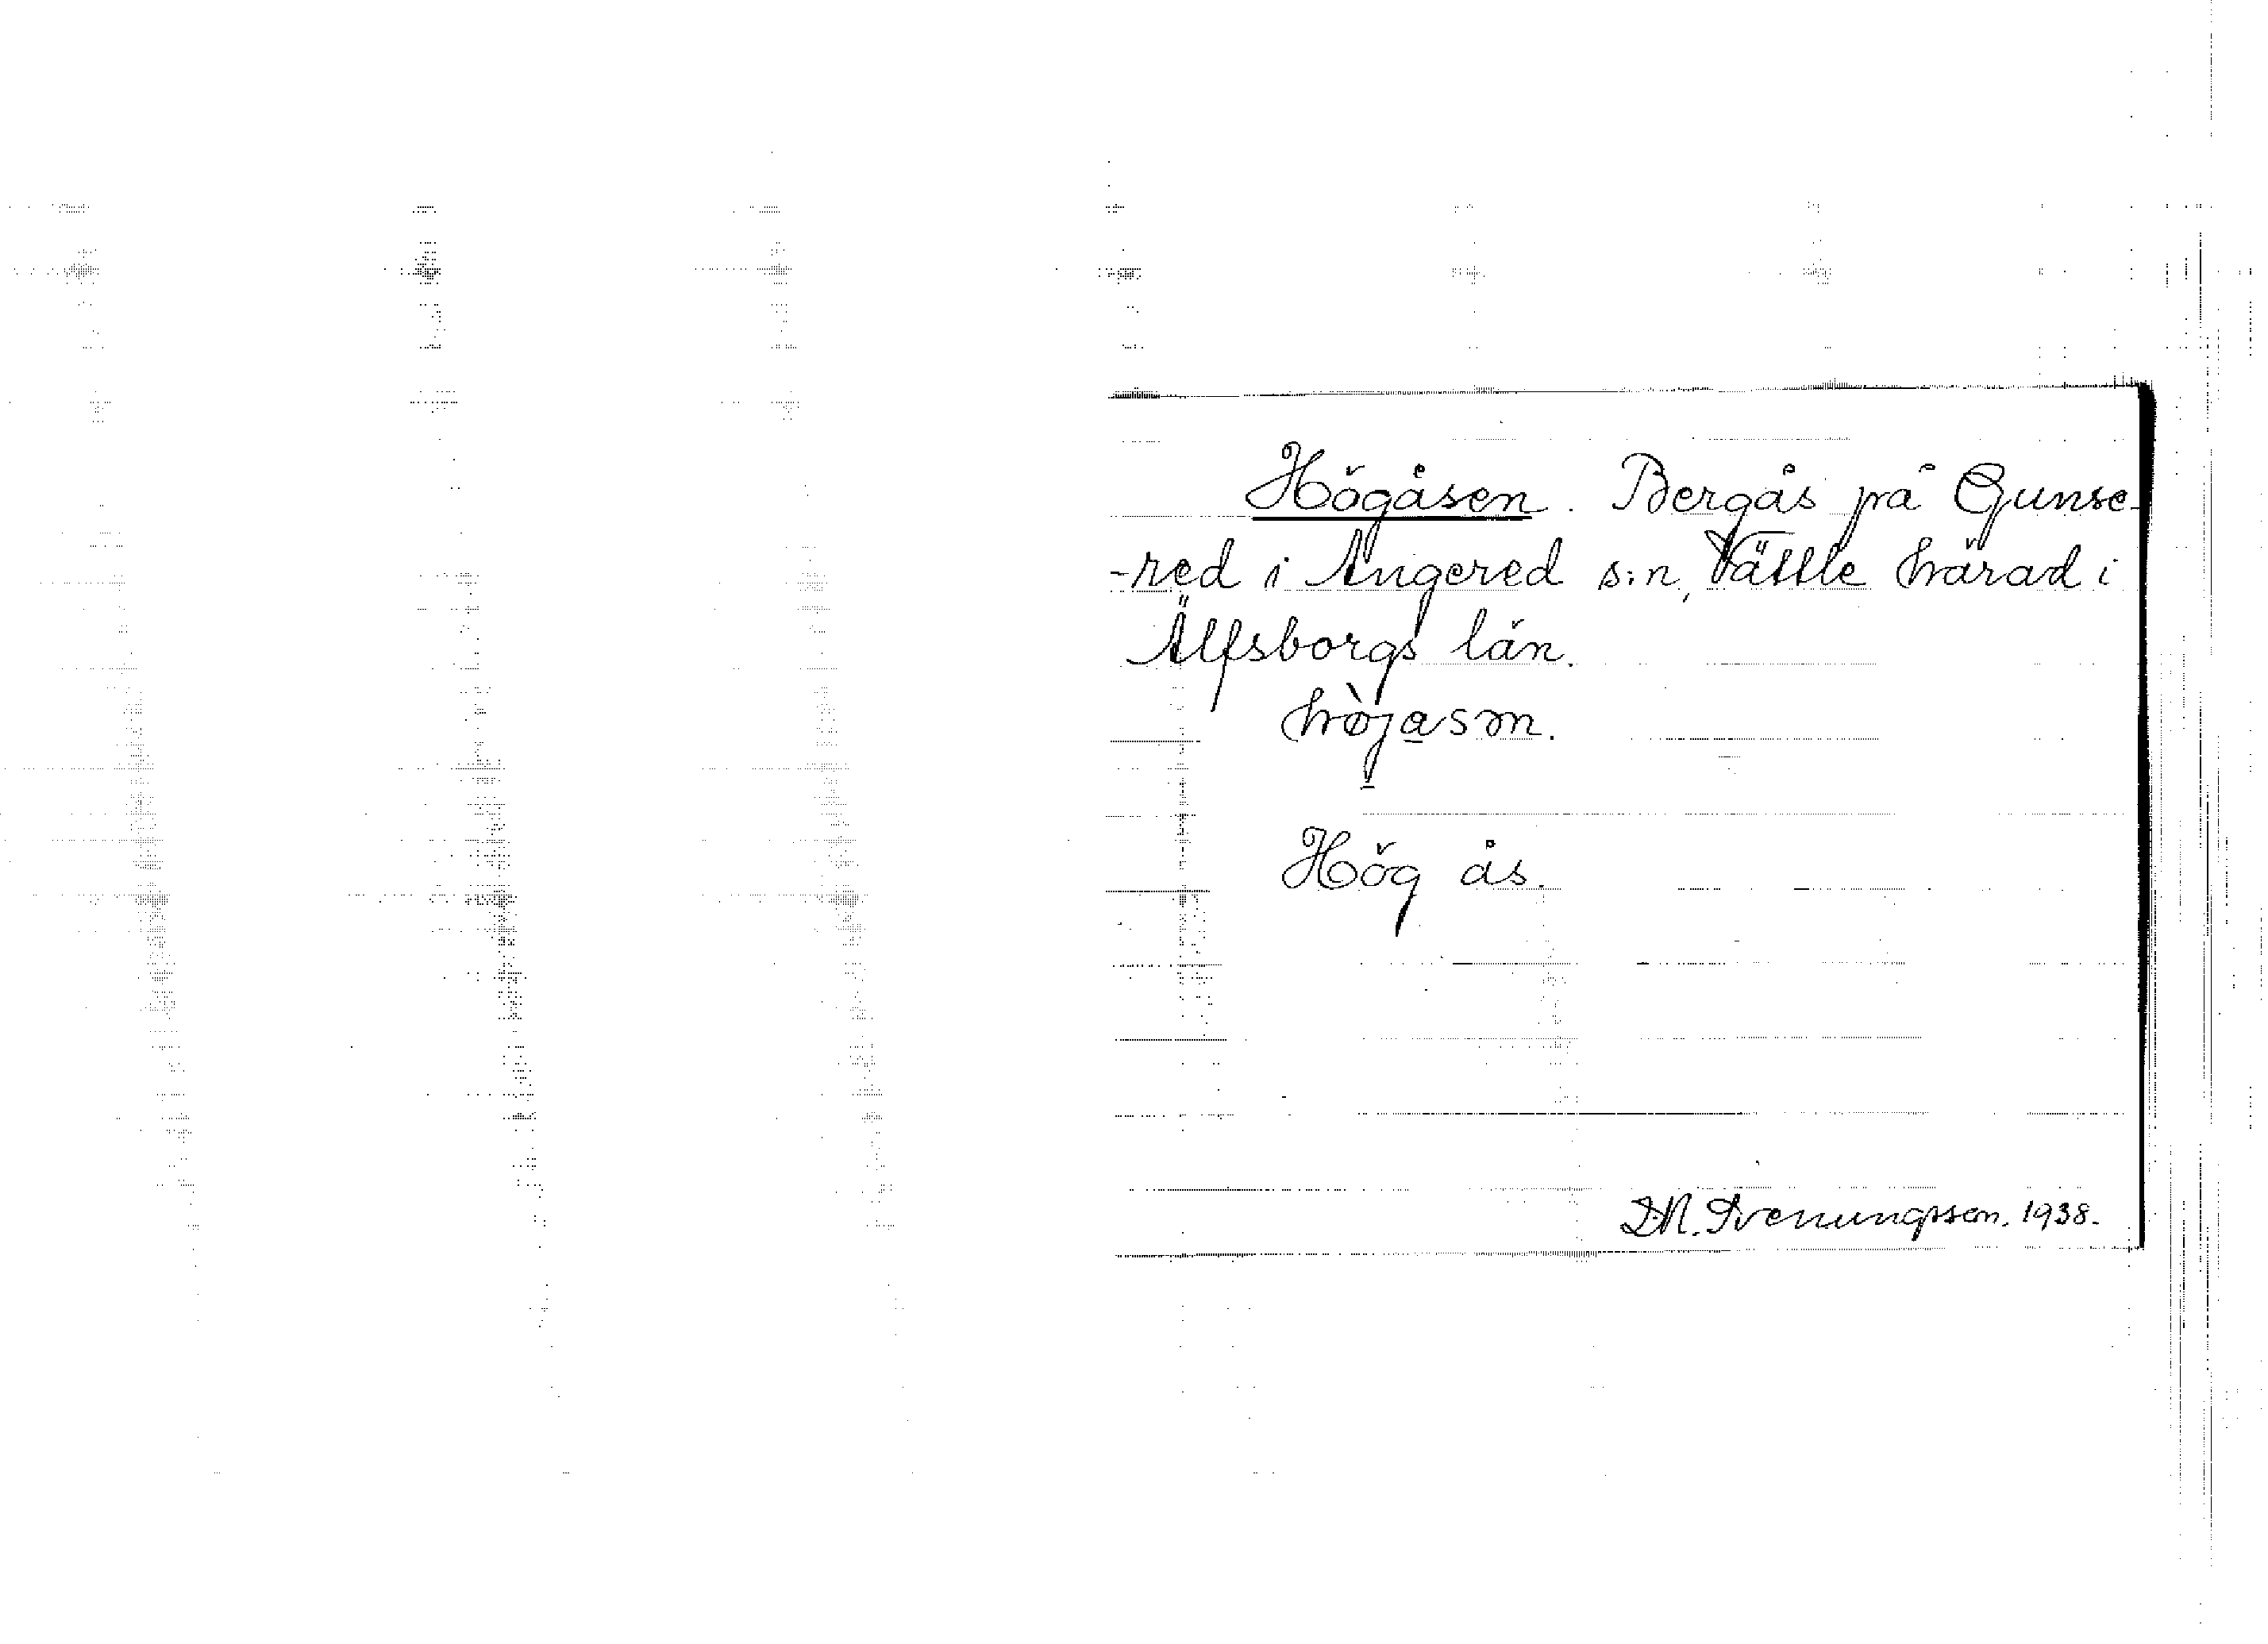 Högåsen. Bergås på Gunse-
-red i Angered s:n, Vättle härad i
Älfsborgs län.
hø̀jasm.
Hög ås.
D.M. Svenungsson. 1938.